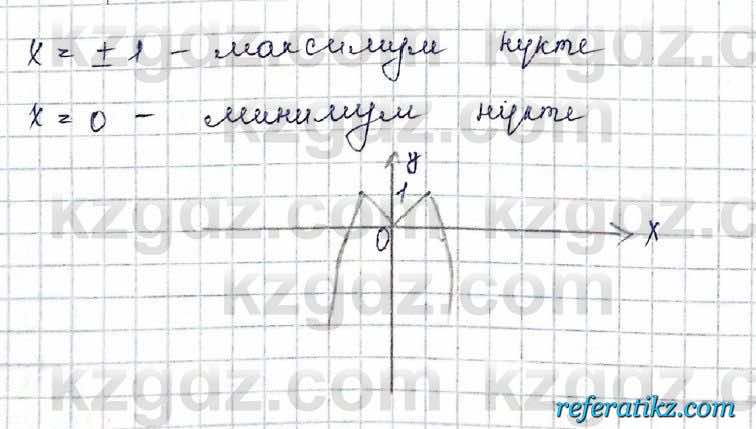 x = ± 1 - максимум нүкте
x = 0 - минимум нүкте
y
1
0
x
kzgdz.com
referatikz.com